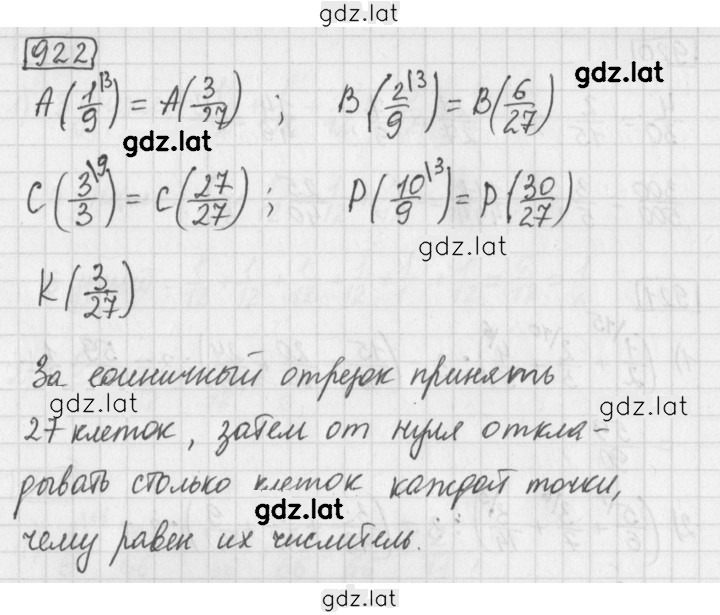 gdz.lat
922
gdz.lat
A(1/9 \3) = A(3/27); B(2/9 \3) = B(6/27)
gdz.lat
C(3/3 \9) = C(27/27); P(10/9 \3) = P(30/27)
gdz.lat
K(3/27)
За единичный отрезок принять
gdz.lat
gdz.lat
27 клеток, затем от нуля откла-
дывать столько клеток каждой точки,
gdz.lat
чему равен их числитель.
gdz.lat